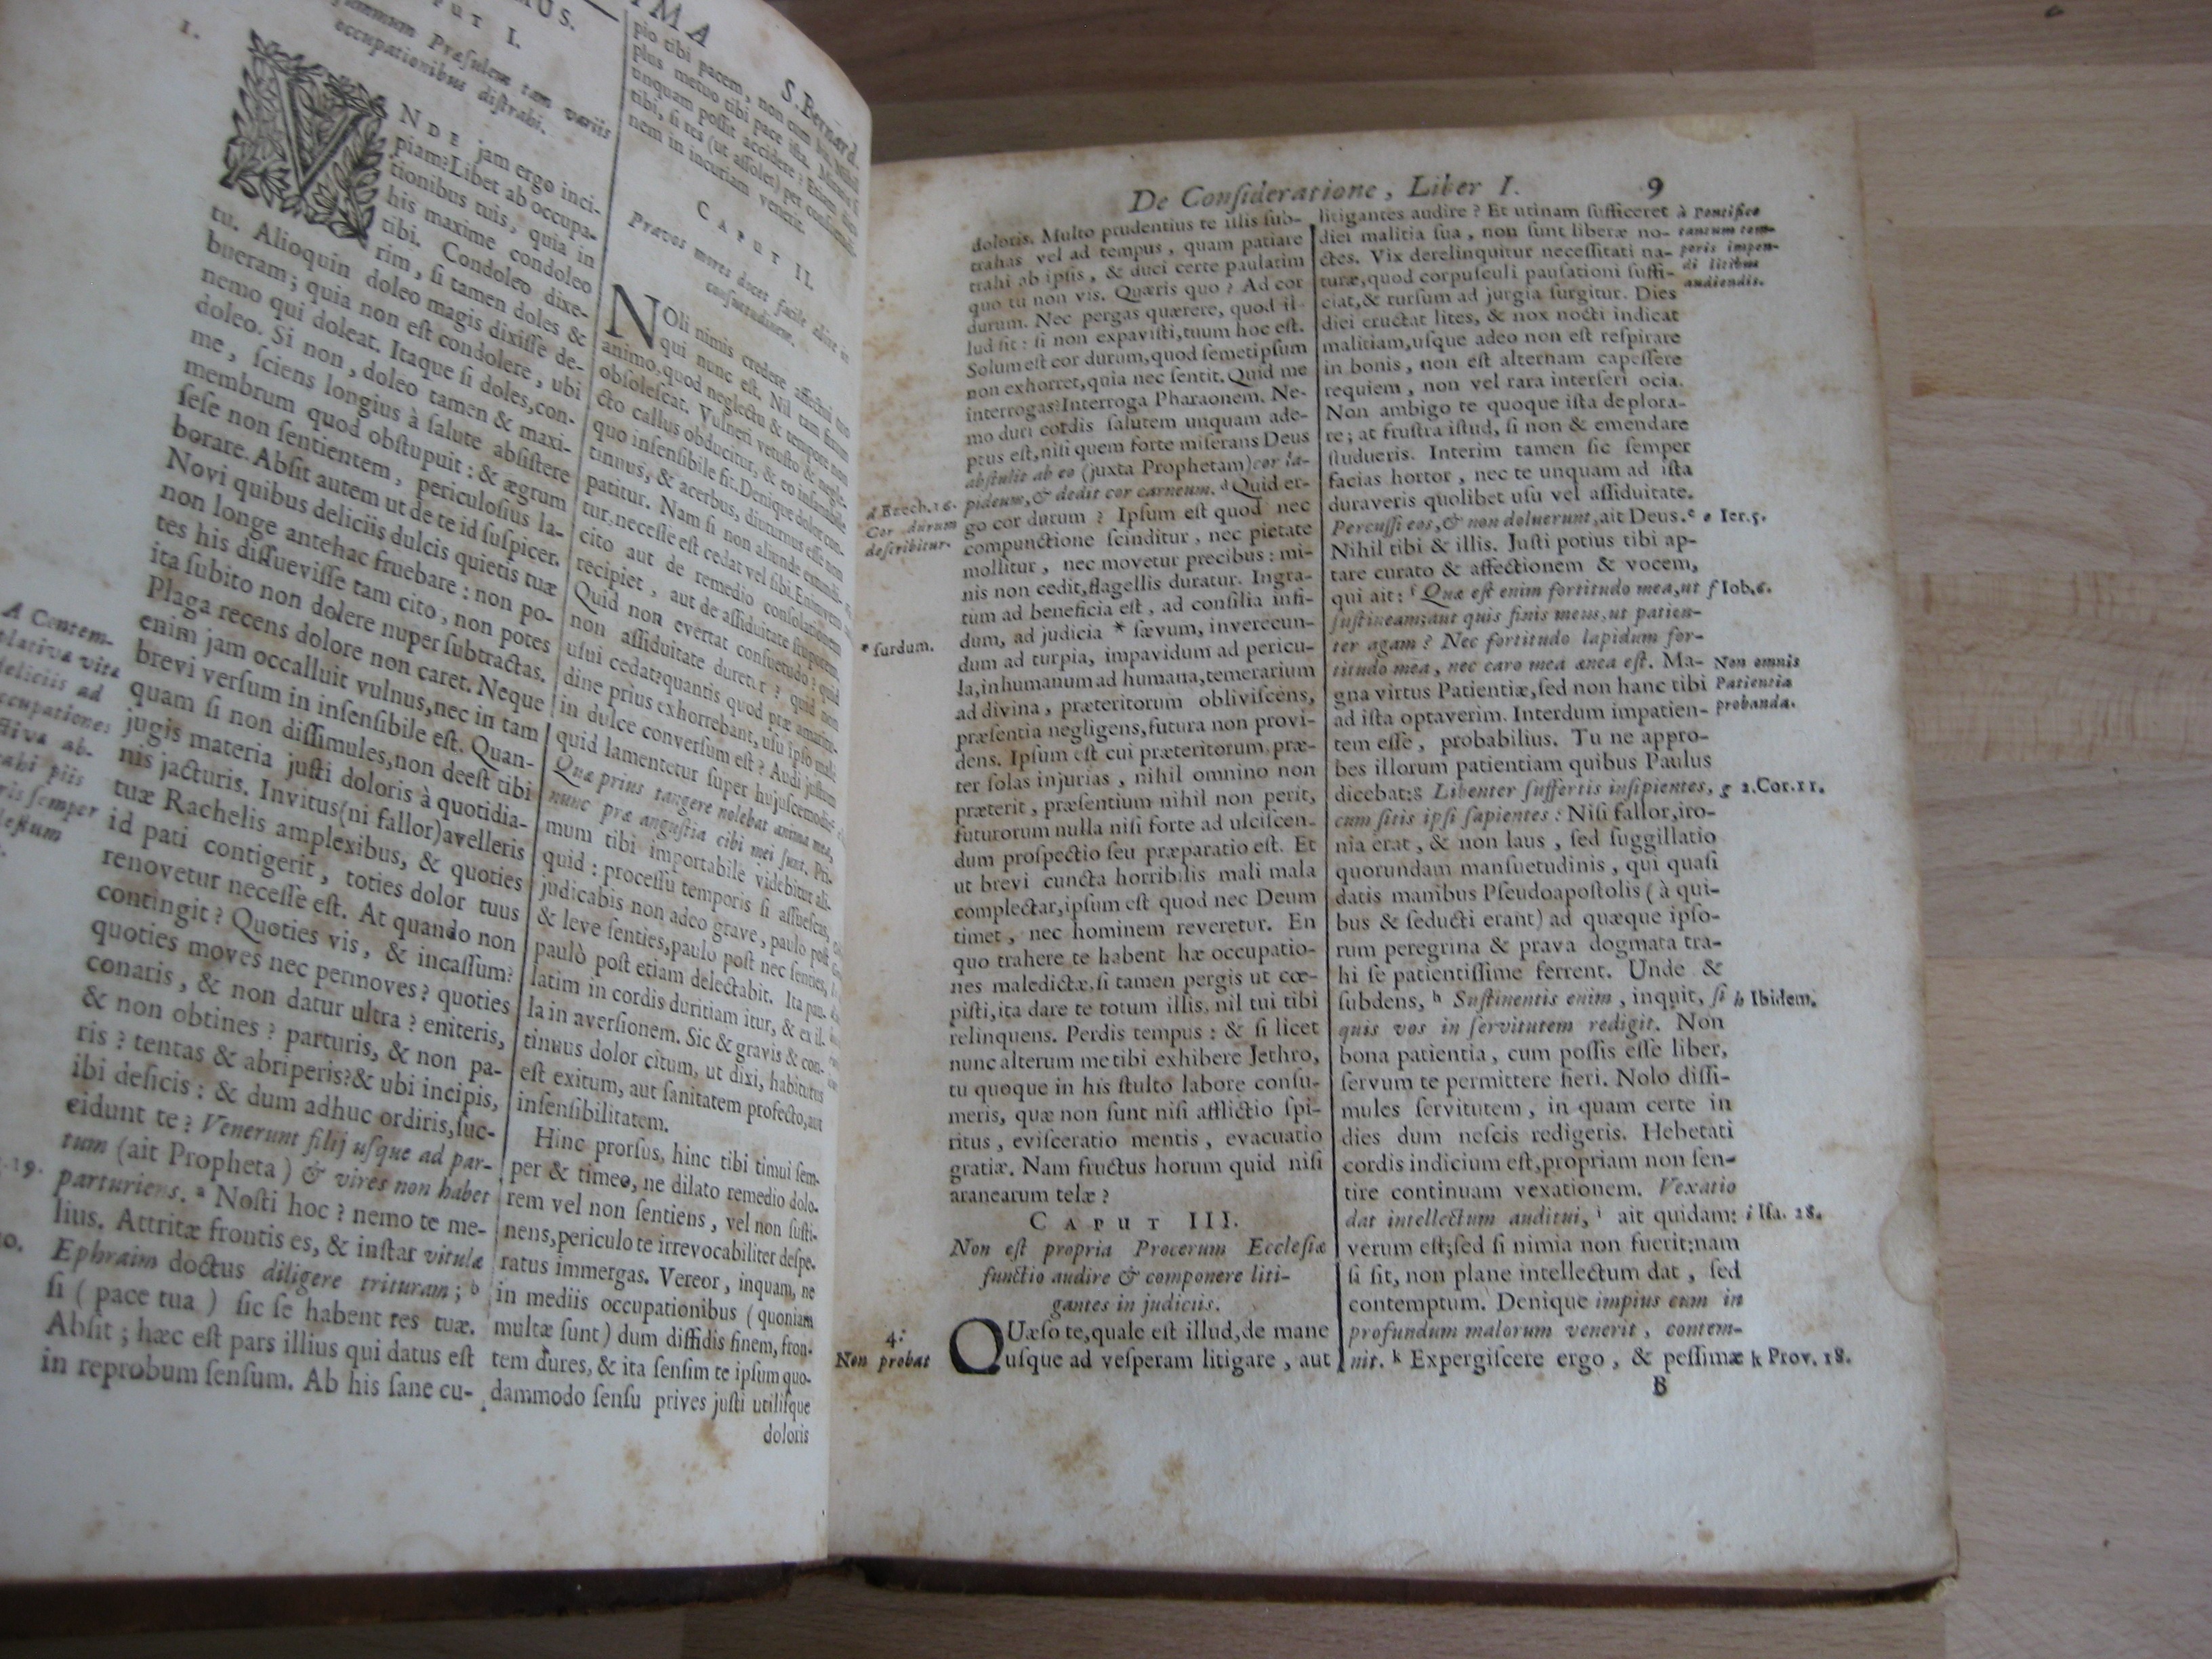 IMUS.
IMA
S. Bernard.
PUT I.
summum Præſulem tam variis
occupationibus diſtrahi.
1.
VNDE jam ergo inci-
piam? Libet ab occupa-
tionibus tuis, quia in
his maxime condoleo
tibi. Condoleo dixe-
rim, ſi tamen doles &
tu. Alioquin doleo magis dixiſſe de-
bueram; quia non eſt condolere, ubi
nemo qui doleat. Itaque ſi doles, con-
doleo. Si non, doleo tamen & maxi-
me, ſciens longius à ſalute abſiſtere
membrum quod obſtupuit: & ægrum
ſeſe non ſentientem, periculoſius la-
borare. Abſit autem ut de te id ſuſpicer.
Novi quibus deliciis dulcis quietis tuæ
non longe antehac fruebare: non po-
tes his diſſueviſſe tam cito, non potes
ita ſubito non dolere nuper ſubtractas.
Plaga recens dolore non caret. Neque
enim jam occalluit vulnus, nec in tam
brevi verſum in inſenſibile eſt. Quan-
quam ſi non diſſimules, non deeſt tibi
jugis materia juſti doloris à quotidia-
nis jacturis. Invitus (ni fallor) avelleris
tuæ Rachelis amplexibus, & quoties
id pati contigerit, toties dolor tuus
renovetur neceſſe eſt. At quando non
contingit? Quoties vis, & incaſſum?
quoties moves nec permoves? quoties
conaris, & non datur ultra? eniteris,
& non obtines? parturis, & non pa-
ris? tentas & abriperis? & ubi incipis,
ibi deficis: & dum adhuc ordiris, ſuc-
cidunt te? Venerunt filij uſque ad par-
tum (ait Propheta) & vires non habet
parturiens. ª Noſti hoc? nemo te me-
lius. Attritæ frontis es, & inſtar vitulæ
Ephraim doctus diligere trituram; b
ſi (pace tua) ſic ſe habent res tuæ.
Abſit; hæc eſt pars illius qui datus eſt
in reprobum ſenſum. Ab his ſane cu-
A Contem-
plativa vita
deliciis ad
occupationes
ab-
trahi piis
ſemper
19.
pio tibi pacem, non cum his. Nihil
plus metuo tibi pace iſta. Miraris ſi
unquam poſſit accidere? Etiam dico
tibi, ſi res (ut aſſolet) per conſuetudi-
nem in incuriam venerit.
CAPUT II.
Pravos mores docet facile abire in
conſuetudinem.
NOli nimis credere affectui tuo
qui nunc eſt. Nil tam fixum
animo, quod neglectu & tempore non
obſoleſcat. Vulneri vetuſto & negle-
cto callus obducitur, & eo inſanabile
quo inſenſibile fit. Denique dolor con-
tinuus, & acerbus, diuturnus eſſe non
patitur. Nam ſi non aliunde extundi-
tur, neceſſe eſt cedat vel ſibi. Enimvero
cito aut de remedio conſolationem
recipiet, aut de aſſiduitate ſtuporem.
Quid non evertat conſuetudo? quid
non aſſiduitate duretur? quid non
uſui cedat? quantis quod præ amaritu-
dine prius exhorrebant, uſu ipſo male
in dulce converſum eſt? Audi juſtum
quid lamentetur ſuper hujuſcemodi:
Quæ prius tangere nolebat anima mea,
nunc præ anguſtia cibi mei ſunt. Pri-
mum tibi importabile videbitur ali-
quid: proceſſu temporis ſi aſſueſcas,
judicabis non adeo grave, paulo poſt
& leve ſenties, paulo poſt nec ſenties,
paulò poſt etiam delectabit. Ita pau-
latim in cordis duritiam itur, & ex il-
la in averſionem. Sic & gravis & con-
tinuus dolor citum, ut dixi, habiturus
eſt exitum, aut ſanitatem profecto, aut
inſenſibilitatem.
Hinc prorſus, hinc tibi timui ſem-
per & timeo, ne dilato remedio dolo-
rem vel non ſentiens, vel non ſuſti-
nens, periculo te irrevocabiliter deſpe-
ratus immergas. Vereor, inquam, ne
in mediis occupationibus (quoniam
multæ ſunt) dum diffidis finem, fron-
tem dures, & ita ſenſim te ipſum quo-
dammodo ſenſu prives juſti utiliſque
doloris
De Conſideratione, Liber I. 9
doloris. Multo prudentius te illis ſub-
trahas vel ad tempus, quam patiare
trahi ab ipſis, & duci certe paulatim
quo tu non vis. Quæris quo? Ad cor
durum. Nec pergas quærere, quod il-
lud ſit: ſi non expaviſti, tuum hoc eſt.
Solum eſt cor durum, quod ſemetipſum
non exhorret, quia nec ſentit. Quid me
interrogas? Interroga Pharaonem. Ne-
mo duri cordis ſalutem unquam ade-
ptus eſt, niſi quem forte miſerans Deus
abſtulit ab eo (juxta Prophetam) cor la-
pideum, & dedit cor carneum. d Quid er-
go cor durum? Ipſum eſt quod nec
compunctione ſcinditur, nec pietate
mollitur, nec movetur precibus: mi-
nis non cedit, flagellis duratur. Ingra-
tum ad beneficia eſt, ad conſilia infi-
dum, ad judicia * ſævum, inverecun-
dum ad turpia, impavidum ad pericu-
la, inhumanum ad humana, temerarium
ad divina, præteritorum obliviſcens,
præſentia negligens, futura non provi-
dens. Ipſum eſt cui præteritorum, præ-
ter ſolas injurias, nihil omnino non
præterit, præſentium nihil non perit,
futurorum nulla niſi forte ad ulciſcen-
dum proſpectio ſeu præparatio eſt. Et
ut brevi cuncta horribilis mali mala
complectar, ipſum eſt quod nec Deum
timet, nec hominem reveretur. En
quo trahere te habent hæ occupatio-
nes maledictæ, ſi tamen pergis ut cœ-
piſti, ita dare te totum illis, nil tui tibi
relinquens. Perdis tempus: & ſi licet
nunc alterum me tibi exhibere Jethro,
tu quoque in his ſtulto labore conſu-
meris, quæ non ſunt niſi afflictio ſpi-
ritus, eviſceratio mentis, evacuatio
gratiæ. Nam fructus horum quid niſi
aranearum telæ?
CAPUT III.
Non eſt propria Procerum Eccleſiæ
functio audire & componere liti-
gantes in judiciis.
QUæſo te, quale eſt illud, de mane
uſque ad veſperam litigare, aut
d Ezech. 36.
Cor durum
deſcribitur.
* ſurdum.
4.
Non probat
litigantes audire? Et utinam ſufficeret
diei malitia ſua, non ſunt liberæ no-
ctes. Vix derelinquitur neceſſitati na-
turæ, quod corpuſculi pauſationi ſuffi-
ciat, & rurſum ad jurgia ſurgitur. Dies
diei eructat lites, & nox nocti indicat
malitiam, uſque adeo non eſt reſpirare
in bonis, non eſt alternam capeſſere
requiem, non vel rara interſeri ocia.
Non ambigo te quoque iſta deplora-
re; at fruſtra iſtud, ſi non & emendare
ſtudueris. Interim tamen ſic ſemper
facias hortor, nec te unquam ad iſta
duraveris quolibet uſu vel aſſiduitate.
Percuſſi eos, & non doluerunt, ait Deus. e
Nihil tibi & illis. Juſti potius tibi ap-
tare curato & affectionem & vocem,
qui ait: f Quæ eſt enim fortitudo mea, ut
ſuſtineam; aut quis finis meus, ut patien-
ter agam? Nec fortitudo lapidum for-
titudo mea, nec caro mea ænea eſt. Ma-
gna virtus Patientiæ, ſed non hanc tibi
ad iſta optaverim. Interdum impatien-
tem eſſe, probabilius. Tu ne appro-
bes illorum patientiam quibus Paulus
dicebat: g Libenter ſuffertis inſipientes,
cum ſitis ipſi ſapientes: Niſi fallor, iro-
nia erat, & non laus, ſed ſuggillatio
quorundam manſuetudinis, qui quaſi
datis manibus Pſeudoapoſtolis (à qui-
bus & ſeducti erant) ad quæque ipſo-
rum peregrina & prava dogmata tra-
hi ſe patientiſſime ferrent. Unde &
ſubdens, h Suſtinentis enim, inquit, ſi
quis vos in ſervitutem redigit. Non
bona patientia, cum poſſis eſſe liber,
ſervum te permittere fieri. Nolo diſſi-
mules ſervitutem, in quam certe in
dies dum neſcis redigeris. Hebetati
cordis indicium eſt, propriam non ſen-
tire continuam vexationem. Vexatio
dat intellectum auditui, i ait quidam:
verum eſt; ſed ſi nimia non fuerit; nam
ſi ſit, non plane intellectum dat, ſed
contemptum. Denique impius cum in
profundum malorum venerit, contem-
nit. k Expergiſcere ergo, & peſſimæ
B
à Pontifice
tantum tem-
poris impen-
di litibus
audiendis.
e Ier. 5.
f Iob. 6.
Non omnis
Patientia
probanda.
g 2. Cor. 11.
h Ibidem.
i Iſa. 28.
k Prov. 18.